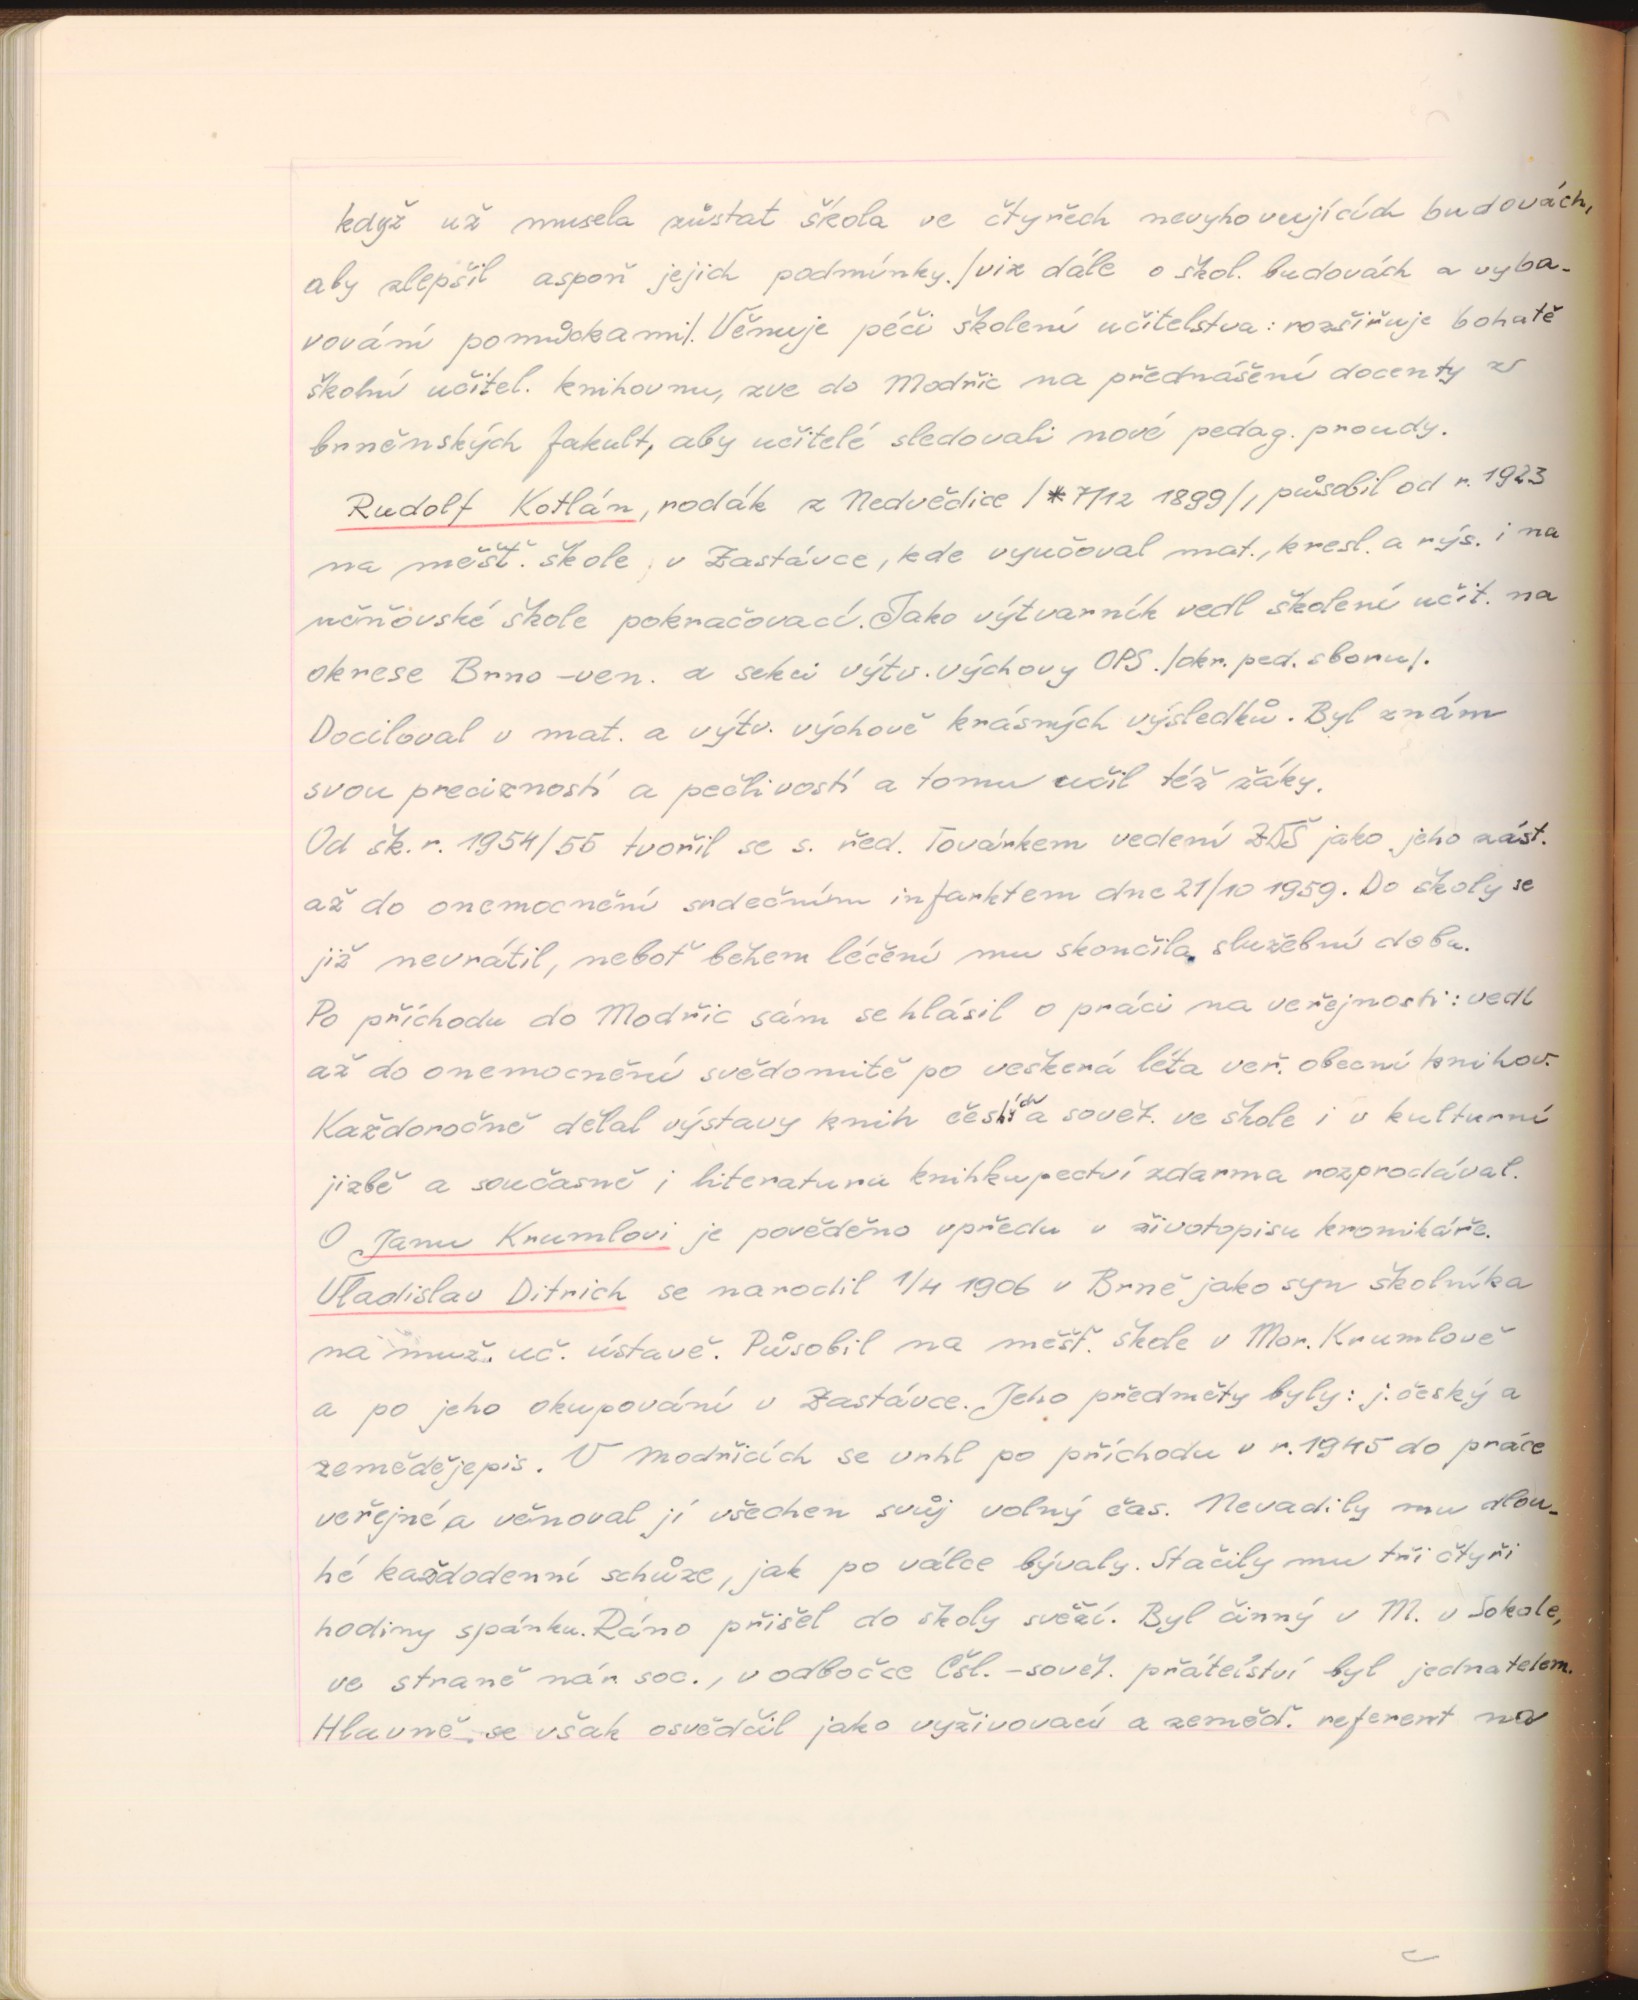 když už musela zůstat škola ve čtyřech nevyhovujících budovách,
aby zlepšil aspoň jejich podmínky. /viz dále o škol. budovách a vyba-
vování pomůckami/. Věnuje péči školení učitelstva: rozšiřuje bohatě
školní učitel. knihovnu, zve do Modřic na přednášení docenty z
brněnských fakult, aby učitelé sledovali nové pedag. proudy.
Rudolf Kotlán, rodák z Nedvědice /*7/12 1899/, působil od r. 1923
na měšť. škole v Zastávce, kde vyučoval mat., kresl. a rýs. i na
učňovské škole pokračovací. Jako výtvarník vedl školení učit. na
okrese Brno-ven. a sekci výtv. výchovy OPS. /okr. ped. sboru/.
Dociloval v mat. a výtv. výchově krásných výsledků. Byl znám
svou precizností a pečlivostí a tomu učil též žáky.
Od šk. r. 1954/55 tvořil se s. řed. Továrkem vedení ZDŠ jako jeho zást.
až do onemocnění srdečním infarktem dne 21/10 1959. Do školy se
již nevrátil, neboť během léčení mu skončila služební doba.
Po příchodu do Modřic sám se hlásil o práci na veřejnosti: vedl
až do onemocnění svědomitě po veškerá léta veř. obecní knihov.
Každoročně dělal výstavy knih českých a sovět. ve škole i v kulturní
jizbě a současně i literaturu knihkupectví zdarma rozprodával.
O Janu Krumlovi je pověděno vpředu v životopisu kronikáře.
Vladislav Ditrich se narodil 1/4 1906 v Brně jako syn školníka
na muž. uč. ústavě. Působil na měšť. škole v Mor. Krumlově
a po jeho okupování v Zastávce. Jeho předměty byly: j. český a
zemědějepis. V Modřicích se vrhl po příchodu v r. 1945 do práce
veřejné a věnoval jí všechen svůj volný čas. Nevadily mu dlou-
hé každodenní schůze, jak po válce bývaly. Stačily mu tři čtyři
hodiny spánku. Ráno přišel do školy svěží. Byl činný v M. v Sokole,
ve straně nár. soc., v odbočce Čsl.-sovět. přátelství byl jednatelem.
Hlavně se však osvědčil jako vyživovací a zeměd. referent na